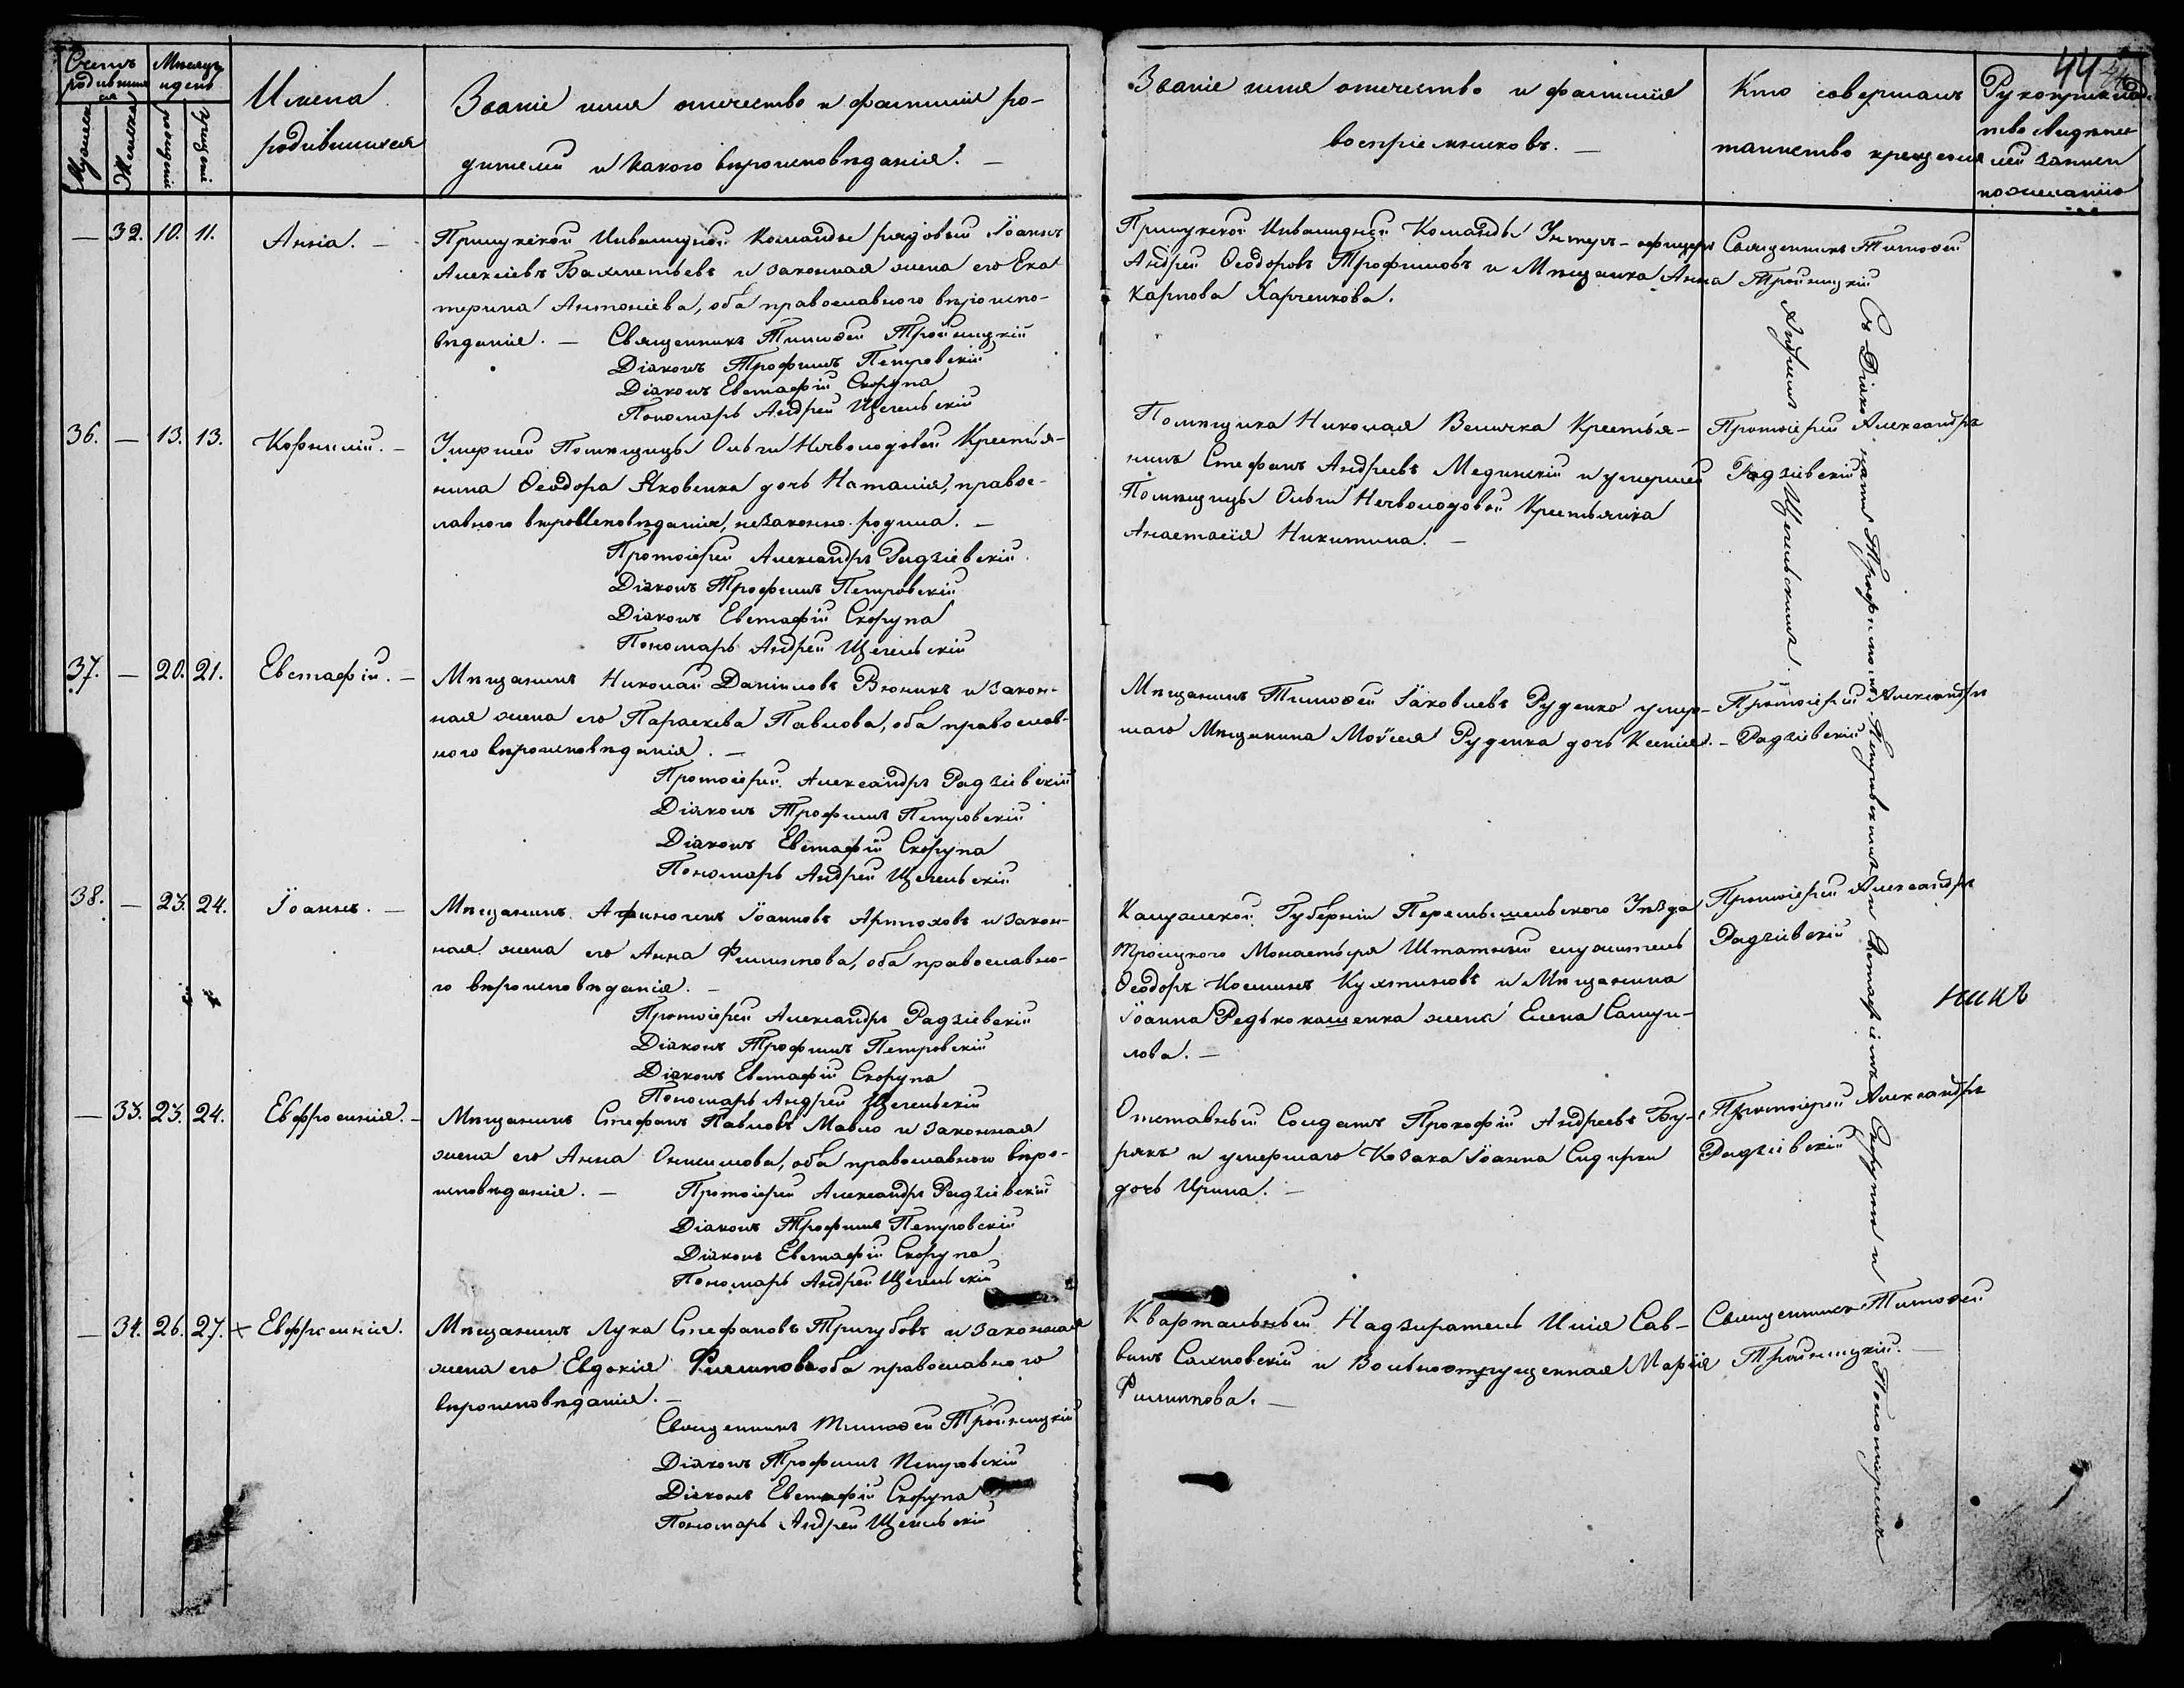 44
Счетъ родившихся
Мѣсяцъ и день
Мужеска
Женска
рожденія
крещенія
Имена
родившихся
Званіе имя отечество и фамилія ро-
дителей и какого вѣроисповѣданія. —
Званіе имя отечество и фамилія
воспріемниковъ. —
Кто совершалъ
таинство крещенія
Рукоприклад-
ство свидѣте-
лей записи
по желанію
— 32. 10. 11. Анна. —
Прилукской Инвалидной Команды рядовый Іоаннъ
Алексіевъ Бахметьевъ и законная жена его Ека
терина Антоніева, оба православного вѣроиспо-
вѣданія. — Священникъ Тимофей Тройницкій
Діаконъ Трофимъ Петровскій
Діаконъ Евстафій Скорупа
Пономарь Андрей Щегельскій
Прилукской Инвалидной Команды Унтеръ-офицеръ
Андрей Ѳеодоровъ Трофимовъ и Мѣщанка Анна
Карпова Харченкова.
Священникъ Тимофей
Тройницкій
36. — 13. 13. Корнилій. —
Умершей Помѣщицы Ольги Нечволодовой Крестья-
нина Ѳеодора Яковенка дочь Наталія, правос-
лавного вѣроисповѣданія, незаконно родила. —
Протоіерей Александръ Радзіевскій
Діаконъ Трофимъ Петровскій
Діаконъ Евстафій Скорупа
Пономарь Андрей Щегельскій
Помѣщика Николая Велички Крестья-
нинъ Стефанъ Андреевъ Мединскій и умершей
Помѣщицы Ольги Нечволодовой Крестьянка
Анастасія Никитина. —
Протоіерей Александръ
Радзіевскій
37. — 20. 21. Евстафій. —
Мѣщанинъ Николай Даніиловъ Вюникъ и закон-
ная жена его Параскева Павлова, оба православ-
ного вѣроисповѣданія. —
Протоіерей Александръ Радзіевскій
Діаконъ Трофимъ Петровскій
Діаконъ Евстафій Скорупа
Пономарь Андрей Щегельскій
Мѣщанинъ Тимофей Іаковлевъ Руденко умер-
шаго Мѣщанина Мойсея Руденка дочь Ксенія. —
Протоіерей Александръ
Радзіевскій
38. — 23. 24. Іоаннъ. —
Мѣщанинъ Афиногенъ Іоанновъ Артюховъ и закон-
ная жена его Анна Филиппова, оба православно-
го вѣроисповѣданія. —
Протоіерей Александръ Радзіевскій
Діаконъ Трофимъ Петровскій
Діаконъ Евстафій Скорупа
Пономарь Андрей Щегельскій
Калужской Губерніи Перемышельского Уѣзда
Троицкого Монастыря Штатный служитель
Ѳеодоръ Косминъ и Мѣщанина
Іоанна Редькокашенка жена Елена Самуи-
лова. —
Протоіерей Александръ
Радзіевскій
— 33. 23. 24. Евфросинія. —
Мѣщанинъ Стефанъ Павловъ Мавло и законная
жена его Анна Онисимова, оба православного вѣро-
исповѣданія. — Протоіерей Александръ Радзіевскій
Діаконъ Трофимъ Петровскій
Діаконъ Евстафій Скорупа
Пономарь Андрей Щегельскій
Отставный Солдатъ Прокофій Андреевъ Бу-
рякъ и умершаго Козака Іоанна Сидирки
дочь Ирина. —
Протоіерей Александръ
Радзіевскій
— 34. 26. 27. + Евфросинія.
Мѣщанинъ Лука Стефановъ Тригубовъ и законная
жена его Евдокія Филиппова оба православного
вѣроисповѣданія. —
Священникъ Тимофей Тройницкій
Діаконъ Трофимъ Петровскій
Діаконъ Евстафій Скорупа
Пономарь Андрей Щегельскій
Квартальный Надзиратель Илія Сав-
винъ Сахновскій и Вольноотпущенная Марія
Филиппова. —
Священникъ Тимофей
Тройницкій. —
Съ Діаконами Трофимомъ Петровскимъ и Евстафіемъ Скорупою и Пономаремъ
Андреемъ Щегельскимъ.